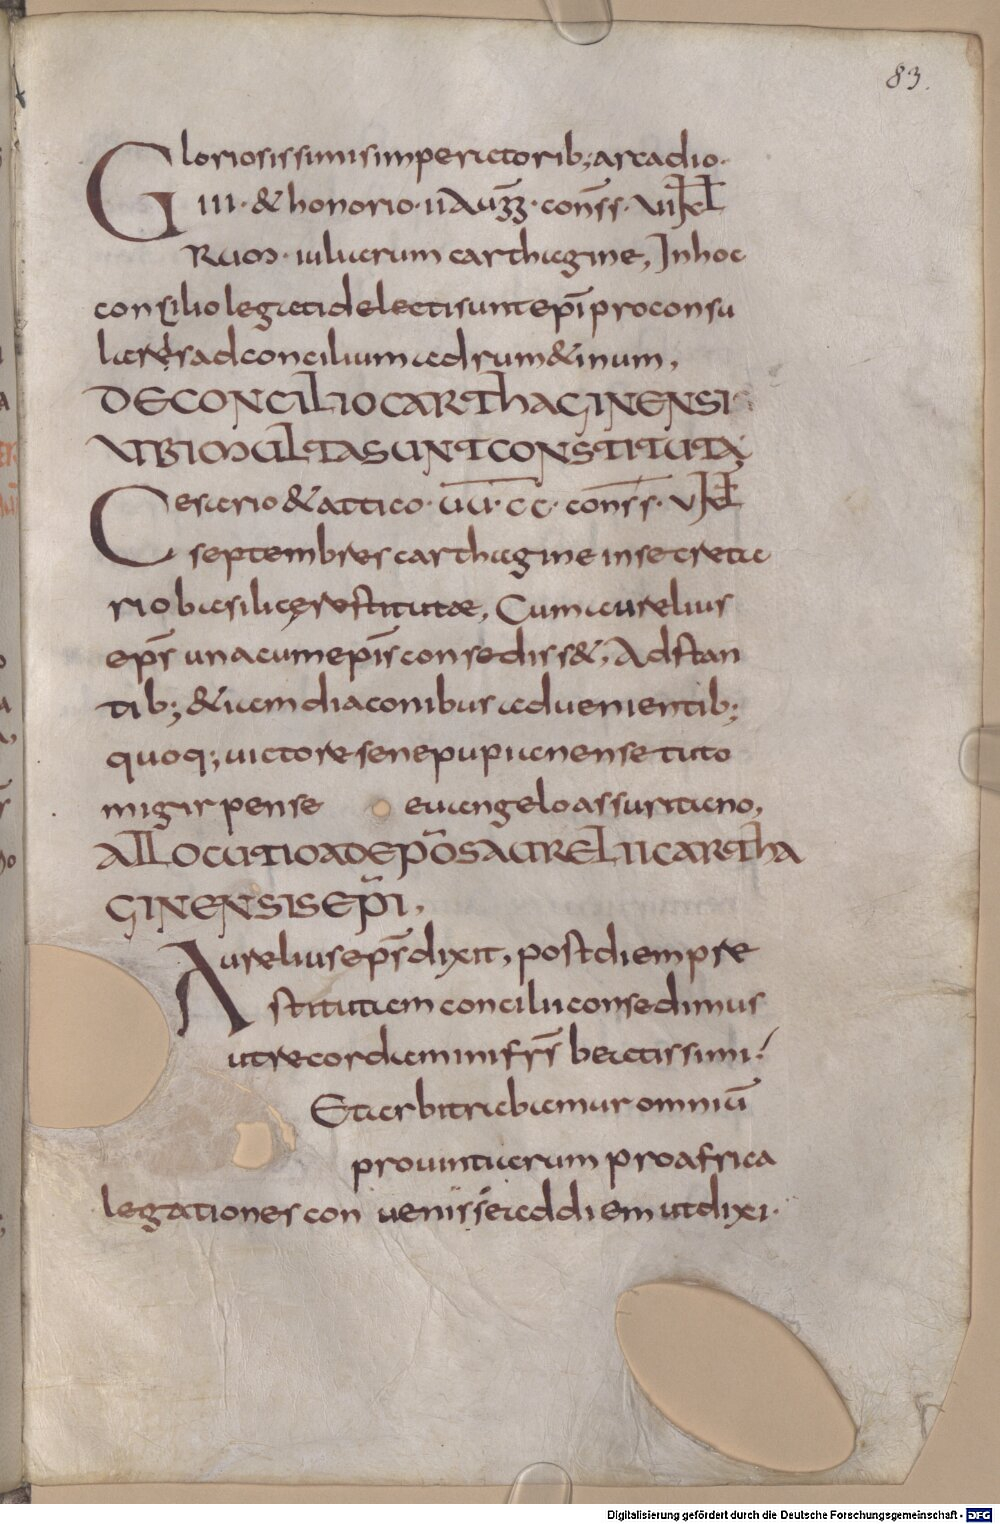 83.
Gloriosissimis imperatorib; arcadio·
III· & honorio· II Auḡḡ· cons̄s· VI KL
Rum· iuliarum carthagine, In hoc
consilio legati delecti sunt ep̄i proconsu
lares ad concilium adrum&inum,
DE CONCILIO CARTHAGINENSI
UBI MULTA SUNT CONSTITUTA;
Cesario & attico· ūū· c̄c̄· cons̄s· V KL
septembres carthagine in secreta
rio basilicę restitutae, Cum aurelius
ep̄s una cum ep̄is consediss&, Adstan
tib; &iam diaconibus aduenientib;
quoq; uictore sene pupuanense tuto
migirpense euangelo assuritano,
ALLOCUTIO AD EP̄OS AURELII CARTHA
GINENSIS EP̄I,
Aurelius ep̄s dixit, post diem pre
stitutam concilii consedimus
ut recordamini fr̄s beatissimi:
Et arbitrabamur omniū
prouintiarum pro africa
legationes con uenisse ad diem ut dixi·
Digitalisierung gefördert durch die Deutsche Forschungsgemeinschaft - DFG